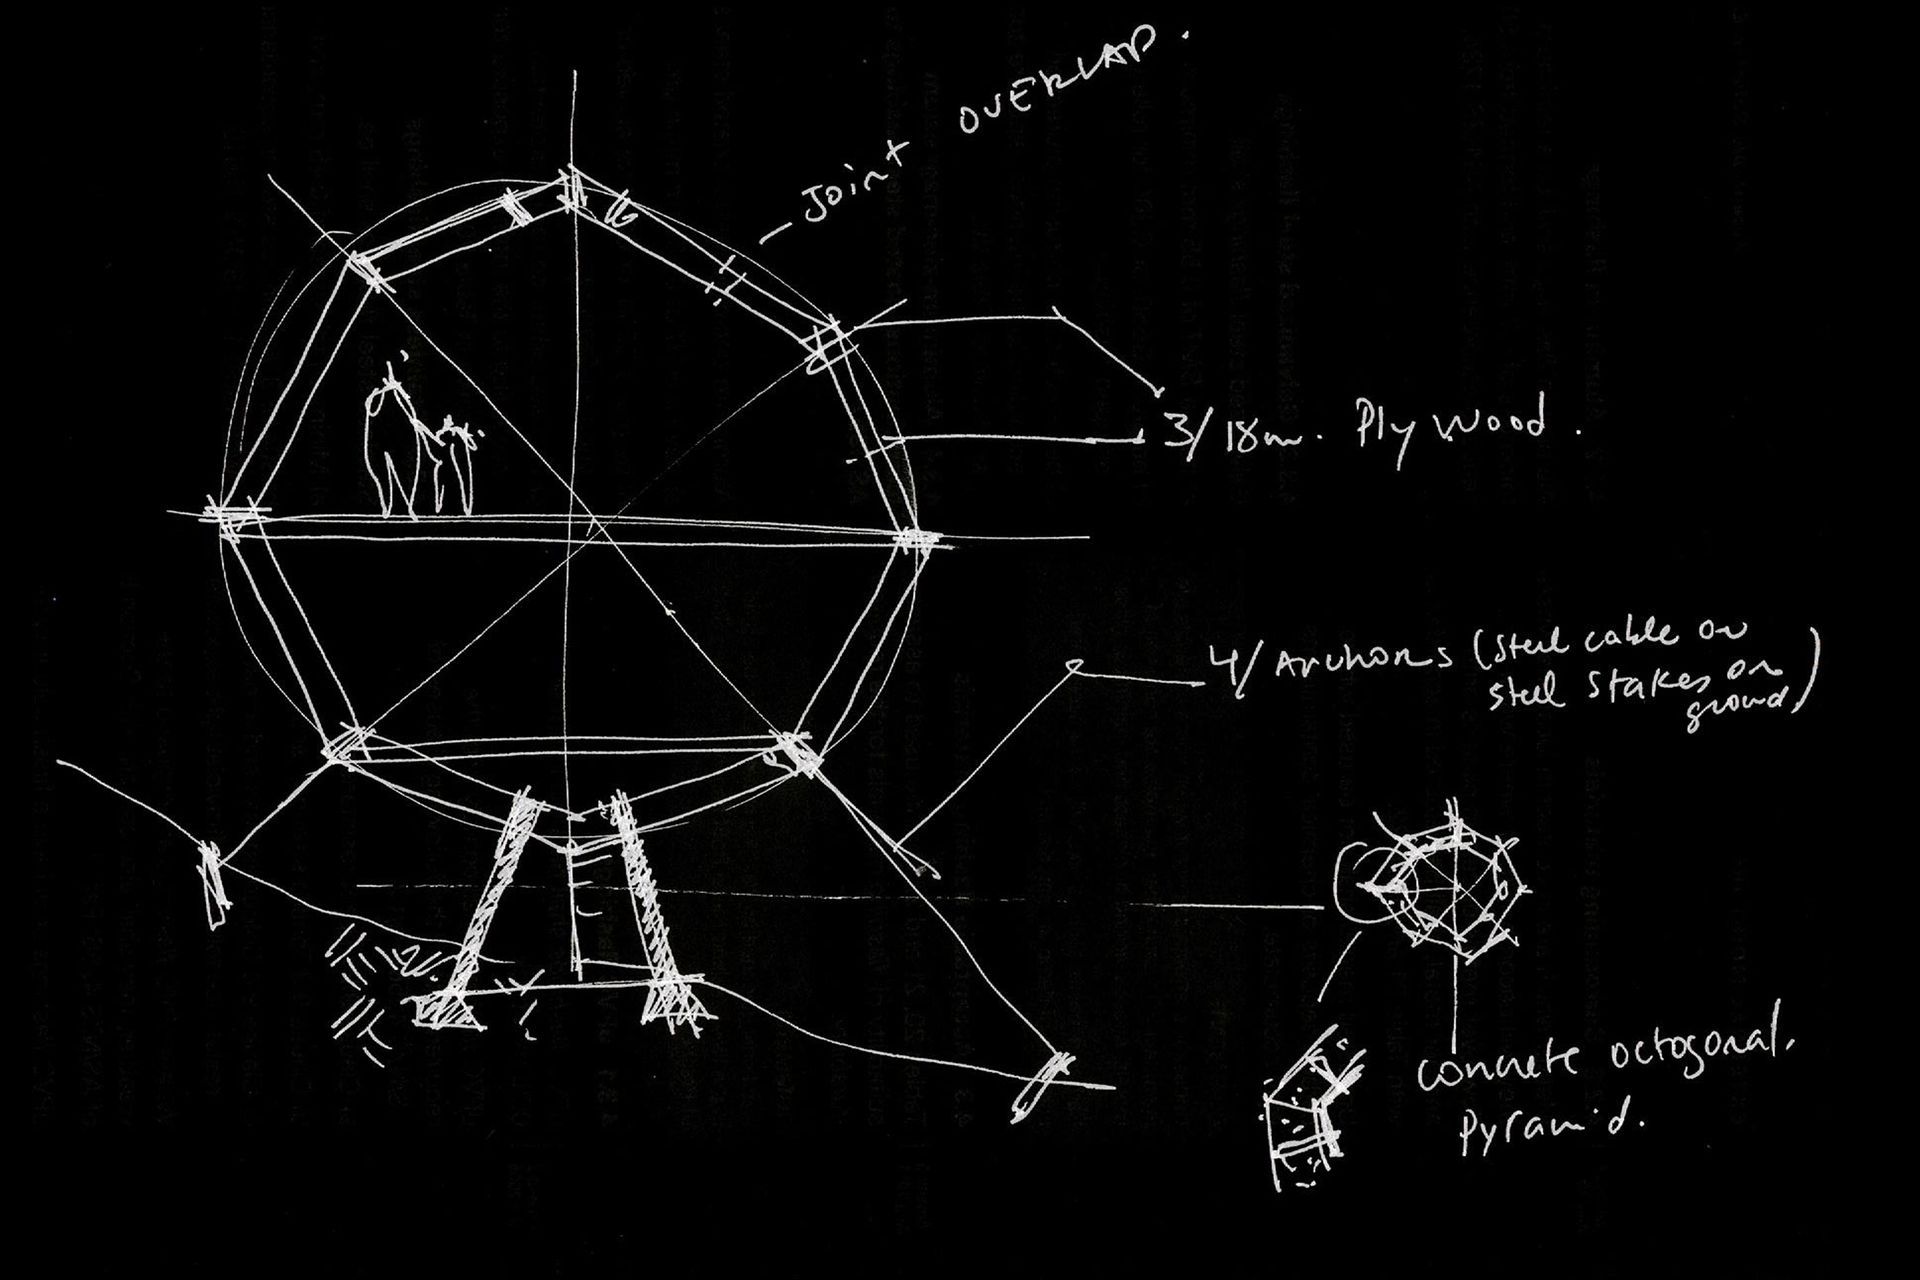 Joint OVERLAP.
3/18m. Plywood.
4/ Anchors (steel cable on
steel stakes on
ground)
concrete octogonal.
pyramid.